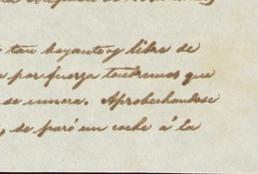 tan boyante y libre de
por fuerza tendremos que
se muera. Aprobechandose
, se paró un coche á la